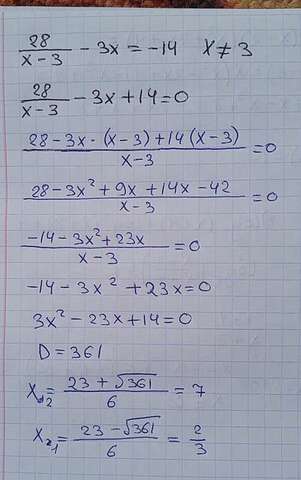 28/(x-3) - 3x = -14   x ≠ 3
28/(x-3) - 3x + 14 = 0
(28 - 3x · (x-3) + 14(x-3))/(x-3) = 0
(28 - 3x² + 9x + 14x - 42)/(x-3) = 0
(-14 - 3x² + 23x)/(x-3) = 0
-14 - 3x² + 23x = 0
3x² - 23x + 14 = 0
D = 361
x₂ = (23 + √361)/6 = 7
x₁ = (23 - √361)/6 = 2/3